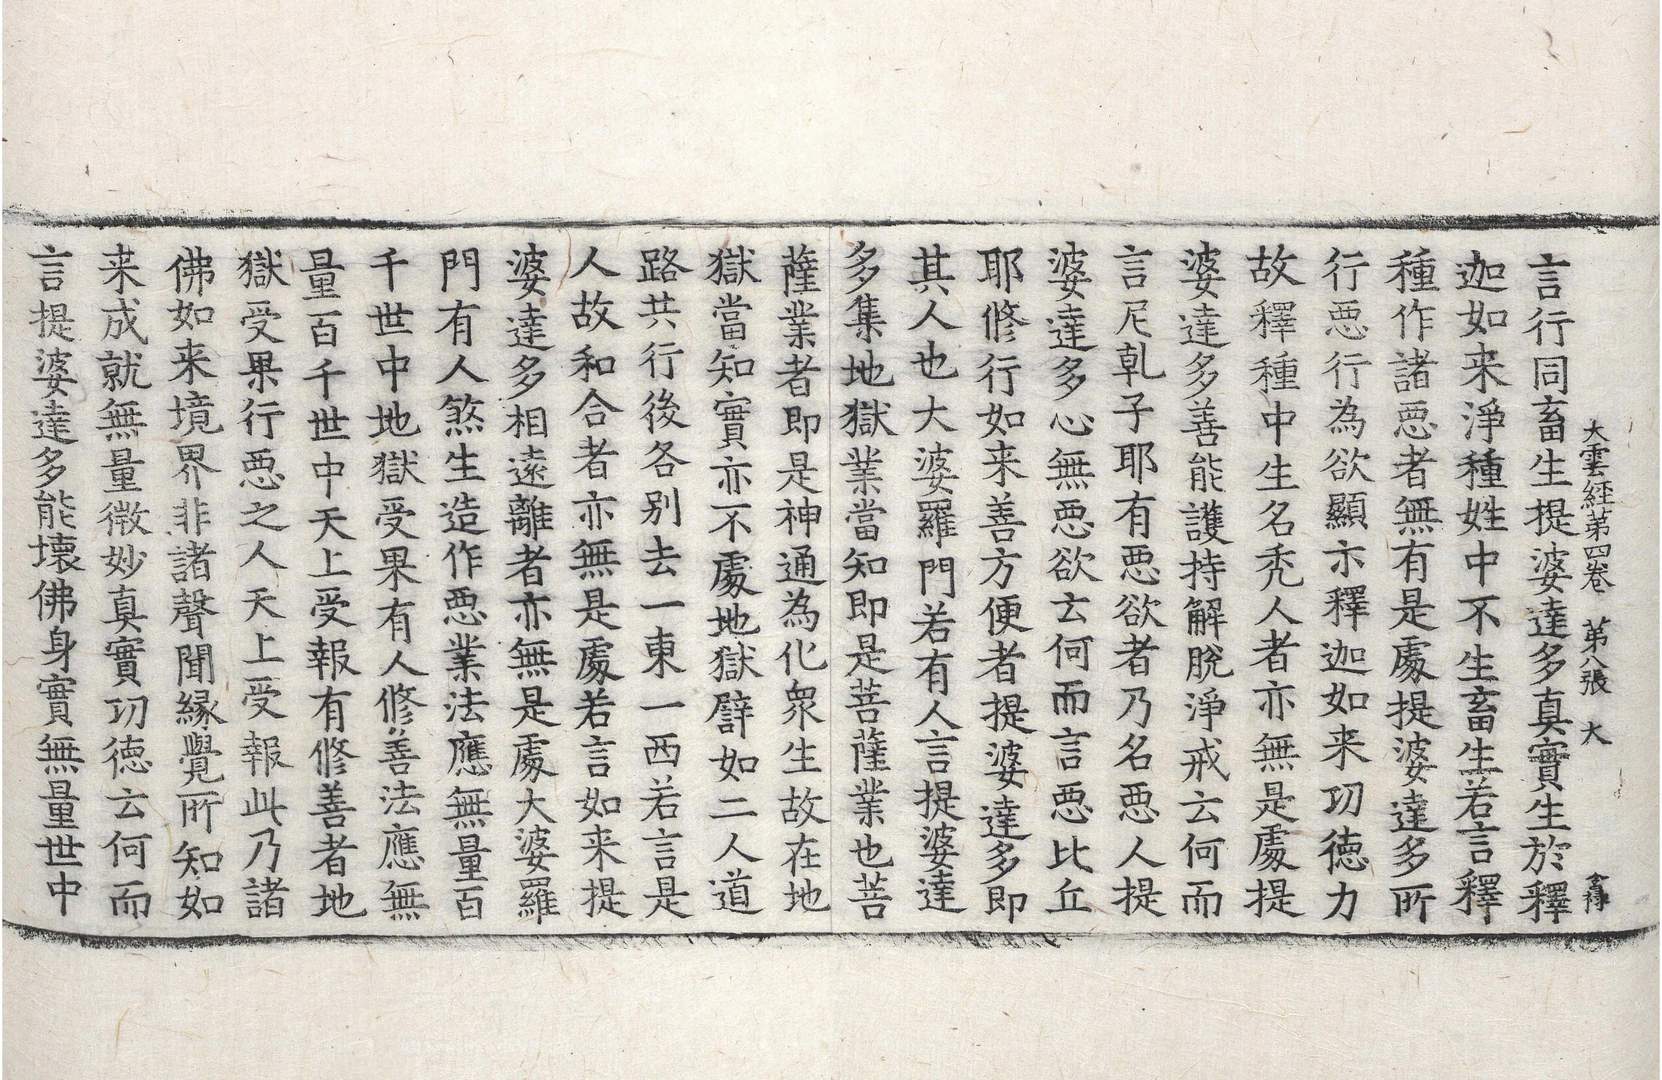 大雲經第四卷 第八張 大
言行同畜生提婆達多真實生於釋
迦如来淨種姓中不生畜生若言釋
種作諸恶者無有是處提婆達多所
行恶行為欲顯示釋迦如来功德力
故釋種中生名秃人者亦無是處提
婆達多善能護持解脫淨戒云何而
言尼乹子耶有恶欲者乃名恶人提
婆達多心無恶欲云何而言恶比丘
耶修行如来善方便者提婆達多即
其人也大婆羅門若有人言提婆達
多集地獄業當知即是菩薩業也菩
薩業者即是神通為化衆生故在地
獄當知實亦不處地獄譬如二人道
路共行後各别去一東一西若言是
人故和合者亦無是處若言如来提
婆達多相遠離者亦無是處大婆羅
門有人煞生造作恶業法應無量百
千世中地獄受果有人修善法應無
量百千世中天上受報有修善者地
獄受果行恶之人天上受報此乃諸
佛如来境界非諸聲聞緣覺所知如
来成就無量微妙真實功德云何而
言提婆達多能壞佛身實無量世中